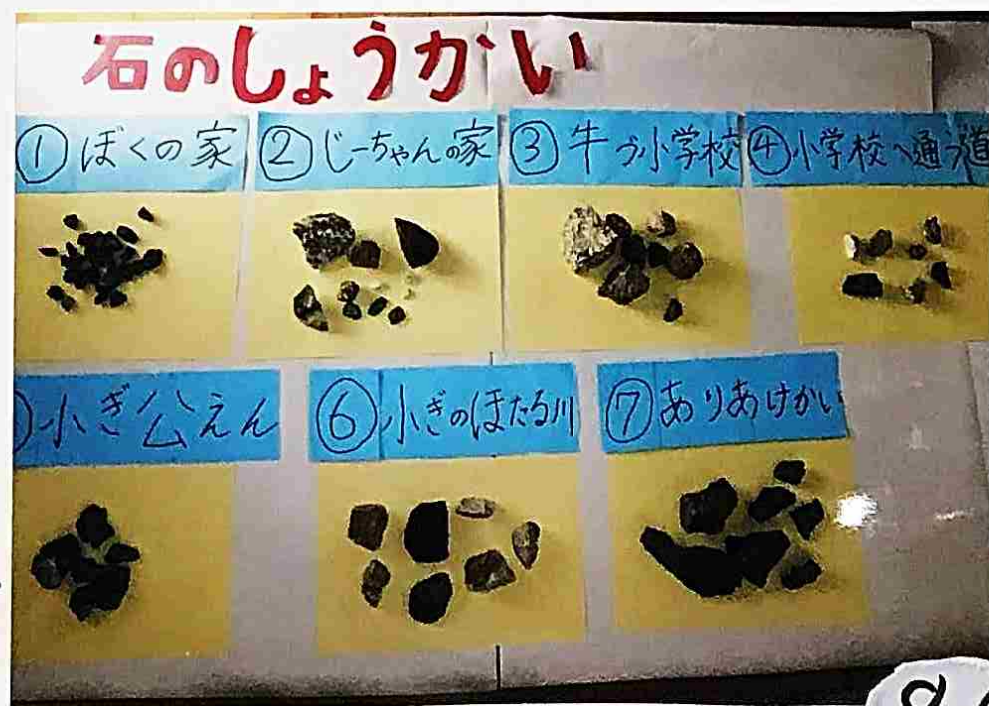 石のしょうかい
①ぼくの家
②じーちゃんの家
③牛づ小学校
④小学校へ通う道
小ぎ公えん
⑥小ぎのほたる川
⑦ありあけかい